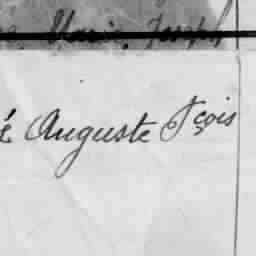 Marie Joseph
é Auguste Fçois